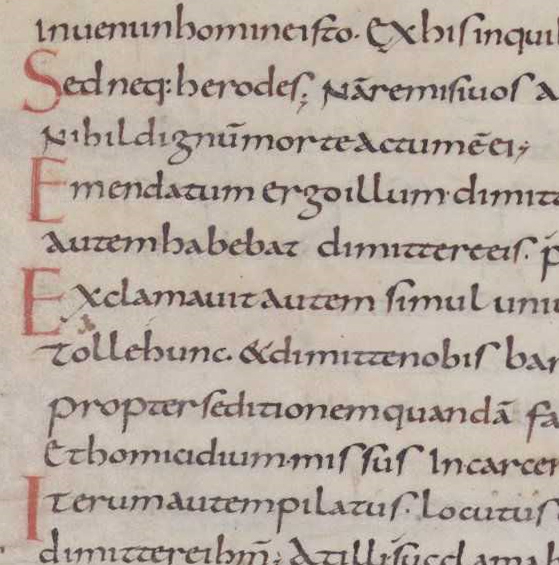 inueni inhomine isto. Ex his in qui
Sed neq: herodes; Nā remisi uos a
Nihil dignū morte actum ē ei;
Emendatum ergo illum dimitt
autem habebat dimittere eis. p
Exclamauit autem simul uniu
Tolle hunc. & dimitte nobis bar
propter seditionem quandā fa
Et homicidium missus In carcer
Iterum autem pilatus. locutus
dimittere ihm̄; At illi succlamab